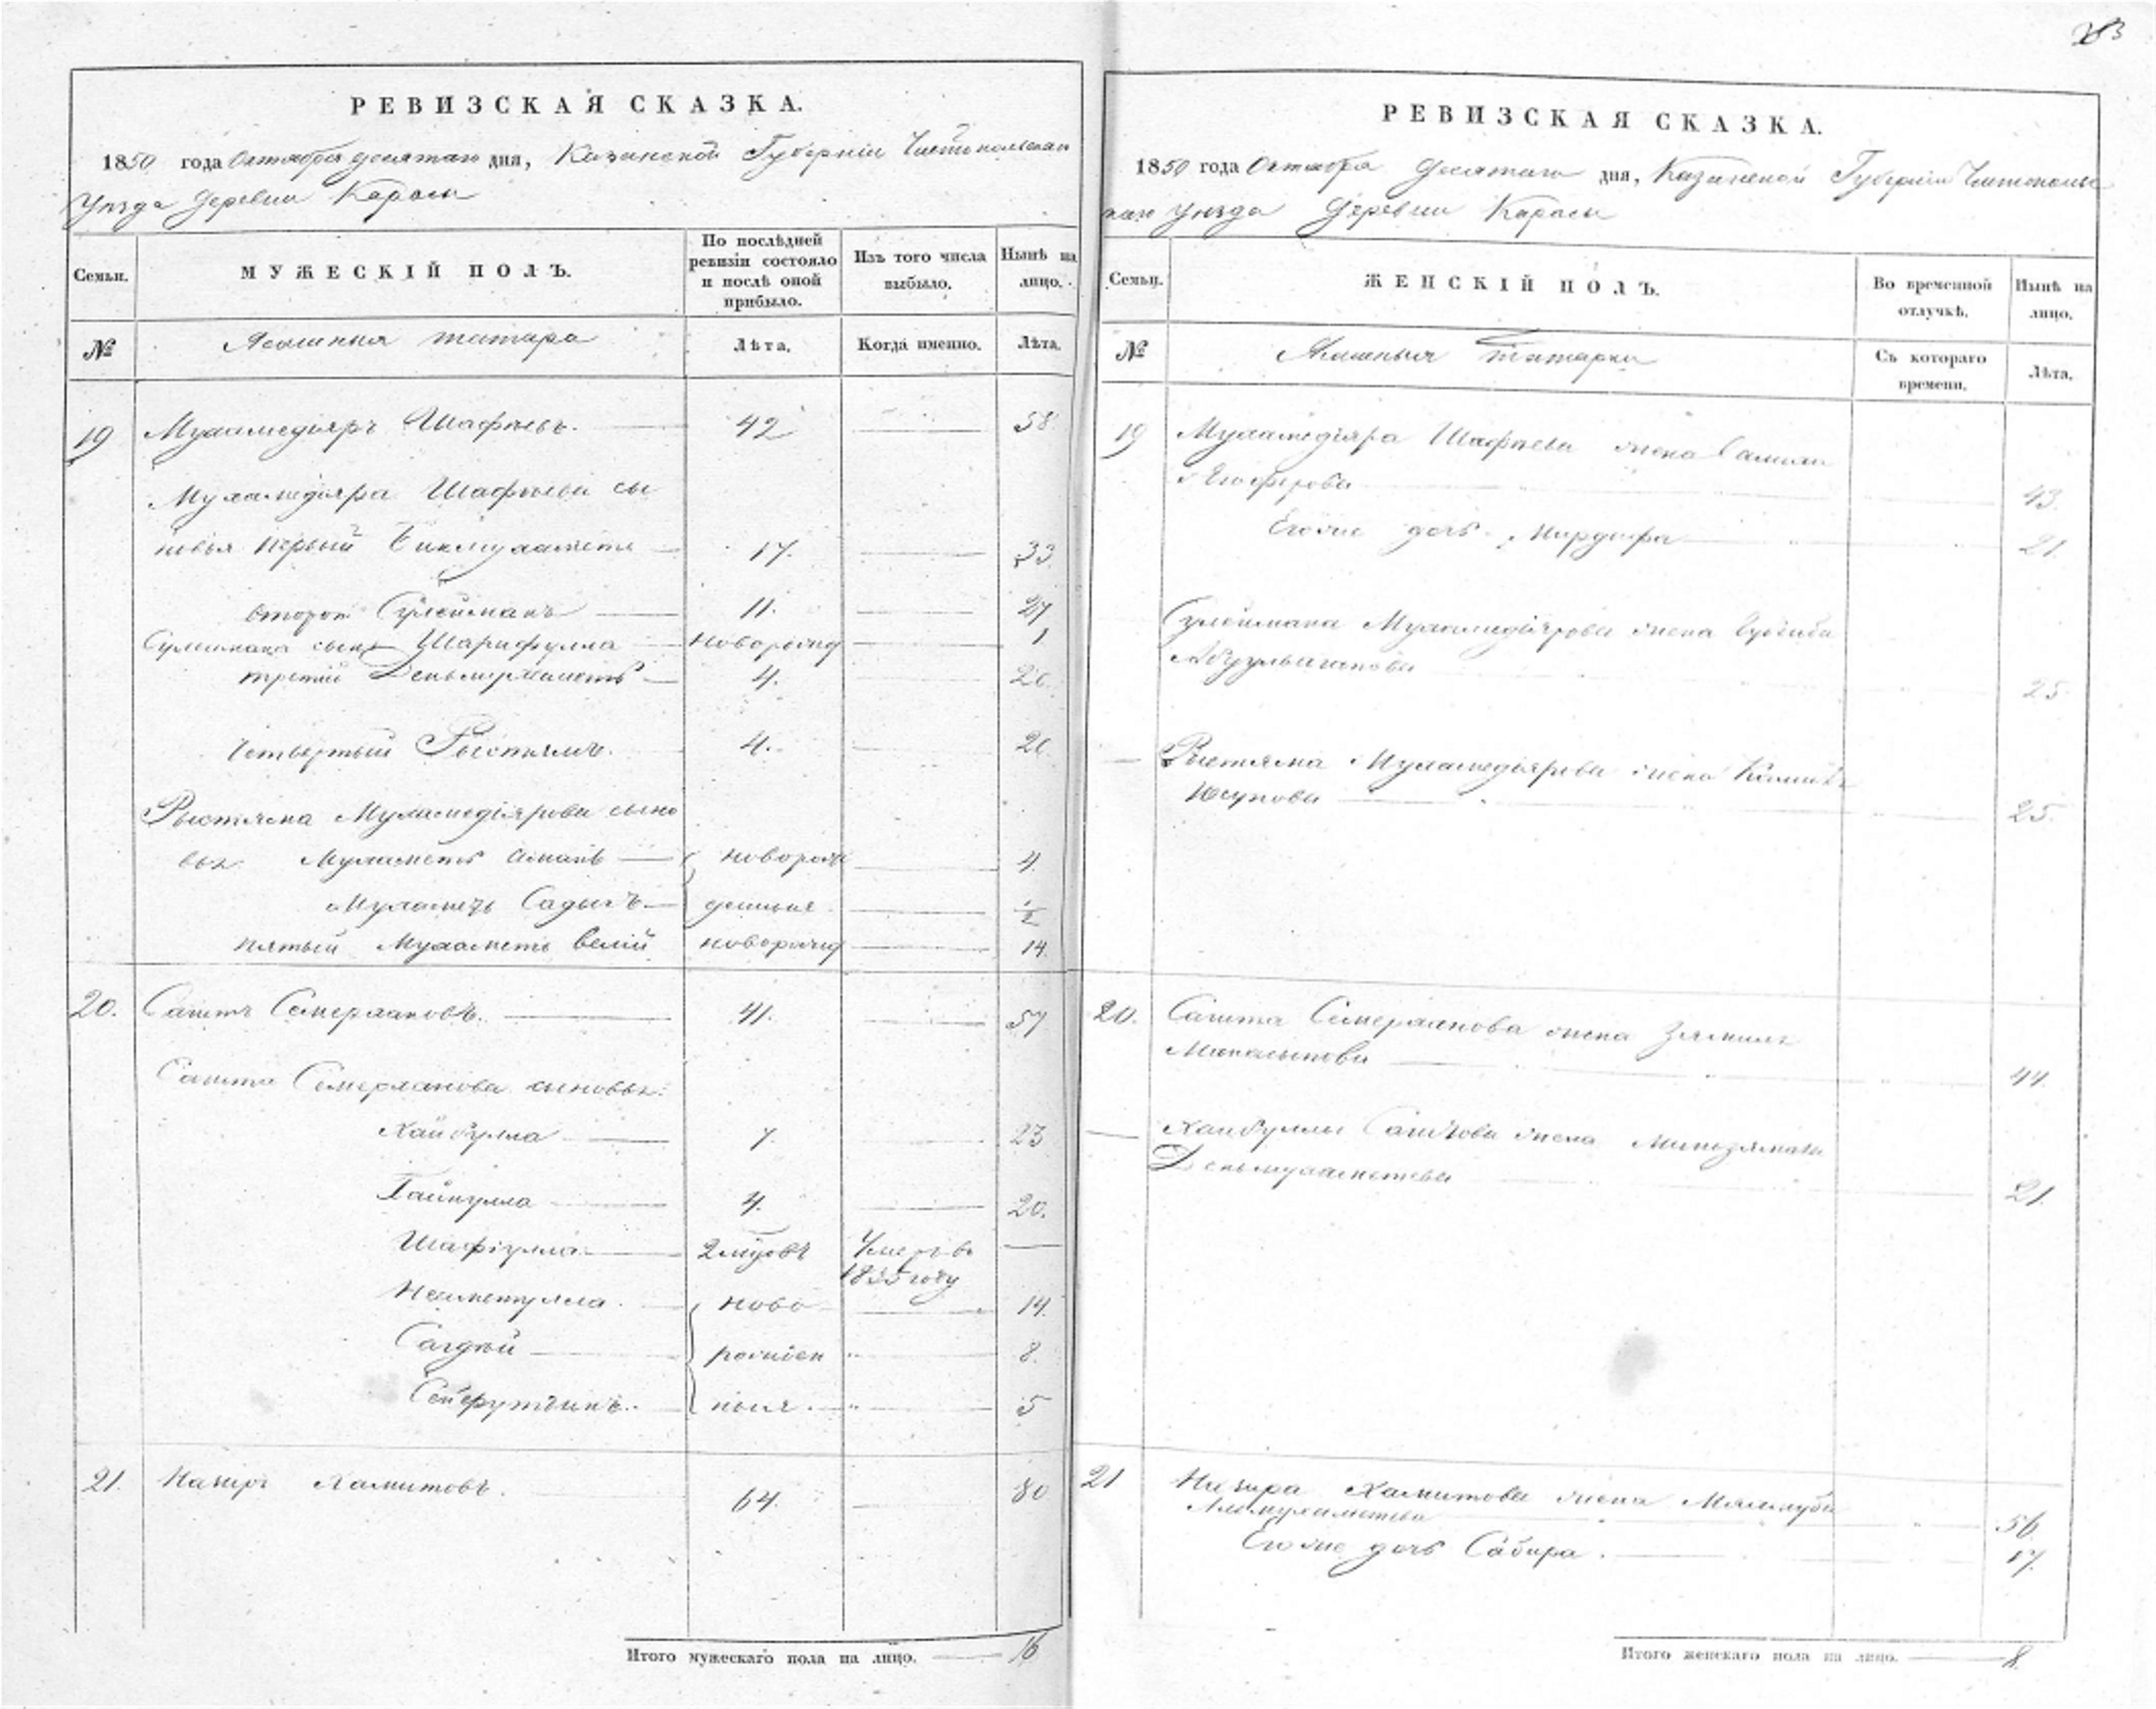 283
РЕВИЗСКАЯ СКАЗКА.
1850 года Октября десятаго дня, Казанской Губерніи Чистопольскаго
Уѣзда деревни Карасы
Семьи.
МУЖЕСКІЙ ПОЛЪ.
По послѣдней ревизіи состояло и послѣ оной прибыло.
Изъ того числа выбыло.
Нынѣ на лицо.
№
Ясашныя татара
Лѣта.
Когда именно.
Лѣта.
19 Мухамедіяръ Шафѣевъ. 42 58
Мухамедіяра Шафѣева сы
новья первый Бикмухаметъ 17. 33
второй Сулейманъ 11. 27
Сулеймана сынъ Шарифулла новорожд 1
третій Деньмухаметъ 4. 20
четвертый Рыстямъ. 4. 20
Рыстяма Мухамедіярова сыно
вья Мухаметъ новорож 4.
Мухаметъ Садыкъ денныя ½
пятый Мухаметъ Велій новорожд 14
20. Саитъ Семерхановъ. 41. 57
Саита Семерханова сыновья:
Хайбулла 7. 23
Гайнулла 4. 20.
Шафіулла 2 годовъ Умеръ въ
1835 году
Неаметулла. ново 14.
Сагдѣй рожден 8.
Сейфутдинъ. ныя 5
21. Назиръ Хамитовъ. 64. 80
Итого мужескаго пола на лицо. 16
РЕВИЗСКАЯ СКАЗКА.
1850 года Октября десятаго дня, Казанской Губерніи Чистопольс
каго Уѣзда Деревни Карасы
Семьи.
ЖЕНСКІЙ ПОЛЪ.
Во временной отлучкѣ.
Нынѣ на лицо.
№
Ясашныя татарки
Съ котораго времени.
Лѣта.
19 Мухамедіяра Шафѣева жена
43.
Ево же дочь 21.
Сулеймана Мухамедіярова жена
25
Рыстяма Мухамедіярова жена
Юсупова 25.
20. Саита Семерханова жена
44.
Хайбуллы Саитова жена
Деньмухаметева 21.
21 Назира Хамитова жена
56
Ево же дочь Сабира. 17.
Итого женскаго пола на лицо. 8.